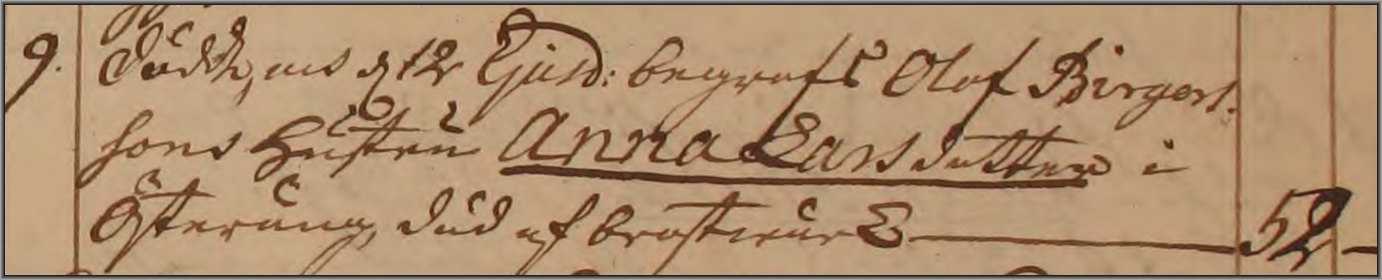 9. dödde, och d. 12 Ejusd: begrofs Olof Birgers-
sons Hustru Anna Larsdotter i
Österäng, död af bröstwärk 52